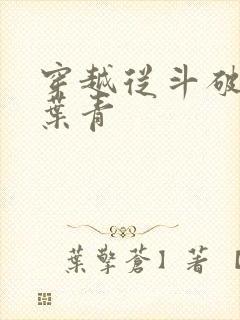 穿越從斗破
葉青
葉擎蒼】著【